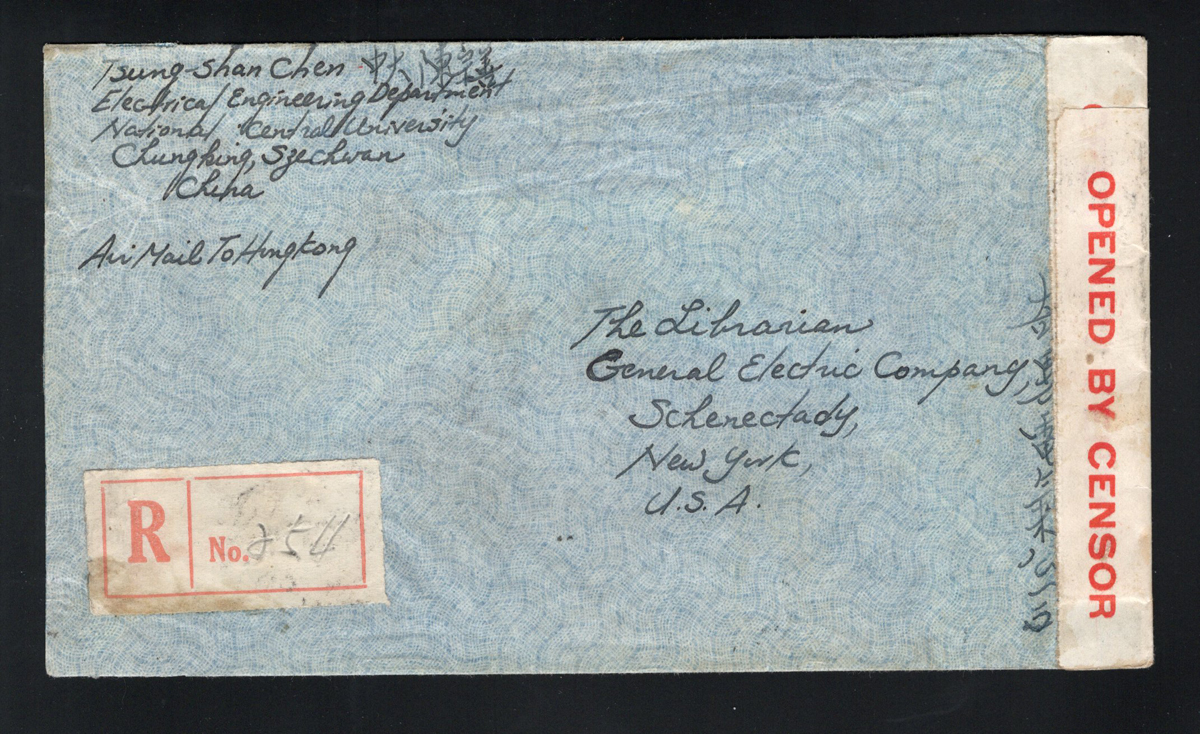 Tsung-Shan Chen
Electrical Engineering Department
National Central University
Chungking, Szechwan
China
Air Mail To Hongkong
The Librarian
General Electric Company,
Schenectady,
New York,
U.S.A.
R
No. 254
OPENED BY CENSOR